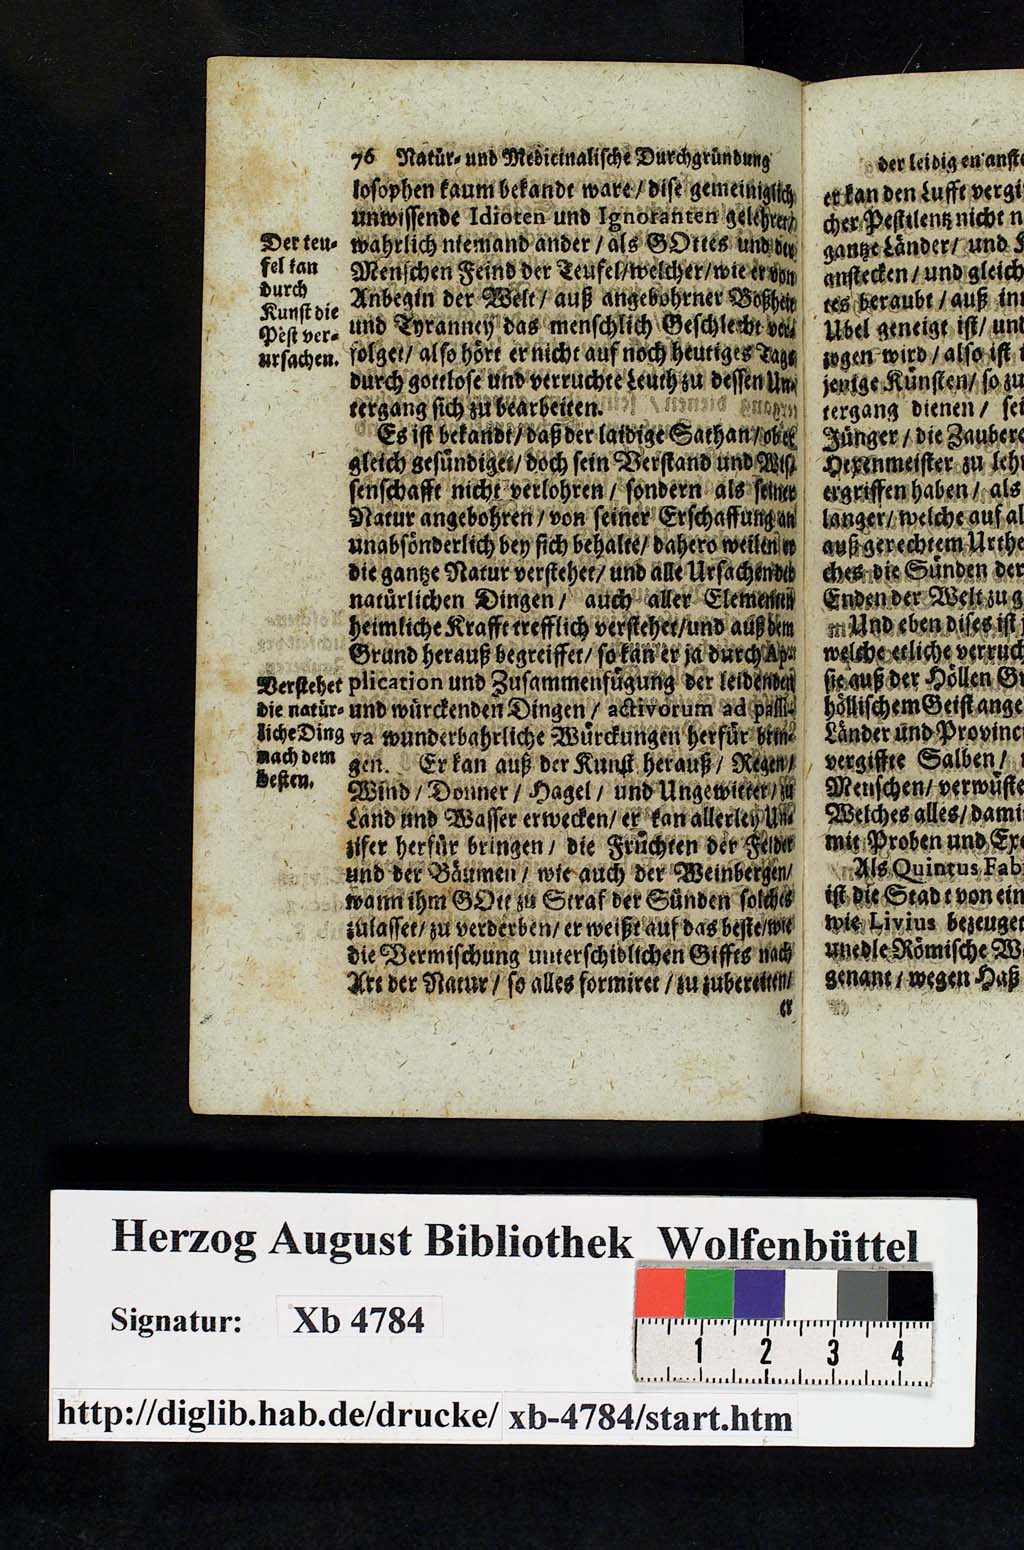 76 Natür- und Medicinalische Durchgründung
losophen kaum bekandt ware / dise gemeiniglich
unwissende Idioten und Ignoranten gelehret /
wahrlich niemand ander / als GOttes und der
Menschen Feind der Teufel / welcher / wie er von
Anbegin der Welt / auß angebohrner Boßheit
und Tyranney das menschlich Geschlecht ver-
folget / also hört er nicht auf noch heutiges Tags
durch gottlose und verruchte Leuth zu dessen Un-
tergang sich zu bearbeiten.
Es ist bekandt / daß der laidige Sathan / ob er
gleich gesündiget / doch sein Verstand und Wis-
senschafft nicht verlohren / sondern als seiner
Natur angebohren / von seiner Erschaffung an
unabsönderlich bey sich behalte / dahero weilen er
die gantze Natur verstehet / und alle Ursachen der
natürlichen Dingen / auch aller Elementen
heimliche Krafft trefflich verstehet / und auß dem
Grund herauß begreiffet / so kan er ja durch Ap-
plication und Zusammenfügung der leidenden
und würckenden Dingen / activorum ad passi-
va wunderbahrliche Würckungen herfür brin-
gen. Er kan auß der Kunst herauß / Regen /
Wind / Donner / Hagel / und Ungewitter / zu
Land und Wasser erwecken / er kan allerley Un-
zifer herfür bringen / die Früchten der Felder
und der Bäumen / wie auch der Weinbergen /
wann ihm GOtt zu Straf der Sünden solches
zulasset / zu verderben / er weißt auf das beste / wie
die Vermischung unterschidlichen Giffts nach
Art der Natur / so alles formiret / zu zubereiten /
er
Der teu-
fel kan
durch
Kunst die
Pest ver-
ursachen.
Verstehet
die natür-
liche Ding
nach dem
besten.
der leidigen anste
er kan den Lufft vergi
cher Pestilentz nicht n
gantze Länder / und
anstecken / und gleich
tes beraubt / auß inn
Ubel geneigt ist / unt
zogen wird / also ist
jenige Künsten / so zu
tergang dienen / sei
Jünger / die Zaubere
Hexenmeister zu lehr
ergriffen haben / als
langer / welche auf al
auß gerechtem Urthe
ches die Sünden der
Enden der Welt zu g
Und eben dises ist j
welche etliche verruch
sie auß der Höllen Gr
höllischem Geist ange
Länder und Provinc
vergiffte Salben /
Menschen / verwüste
Welches alles / dami
mit Proben und Exe
Als Quintus Fab
ist die Stadt von ein
wie Livius bezeuget
unedle Römische W
genant / wegen Haß
Herzog August Bibliothek Wolfenbüttel
Signatur: Xb 4784
1 2 3 4
http://diglib.hab.de/drucke/ xb-4784/start.htm